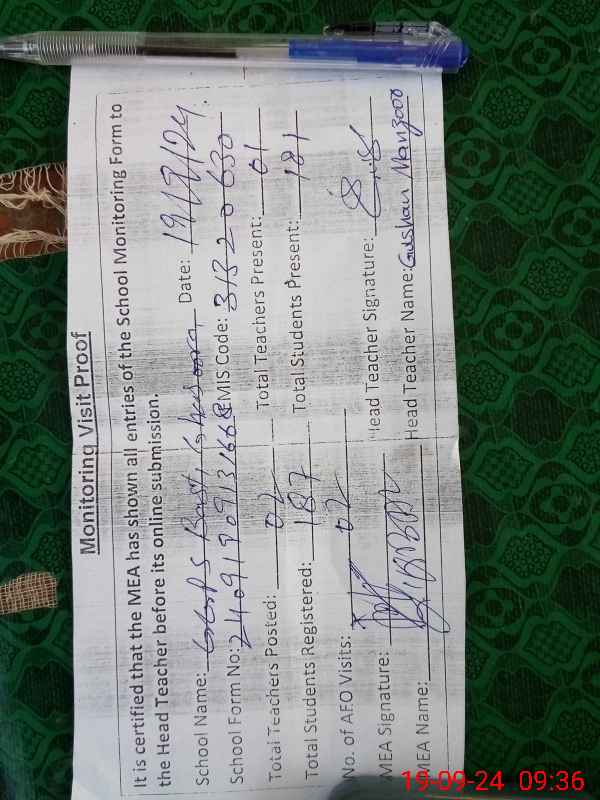 Monitoring Visit Proof
It is certified that the MEA has shown all entries of the School Monitoring Form to
the Head Teacher before its online submission.
School Name: GGPS Basti Date: 19/9/24.
School Form No: EMIS Code: 31320630
Total Teachers Posted: 02 Total Teachers Present: 01
Total Students Registered: 187 Total Students Present: 181
No. of AEO Visits: 02
MEA Signature: Head Teacher Signature:
MEA Name: Head Teacher Name: Gulshan Manzoor
19-09-24 09:36